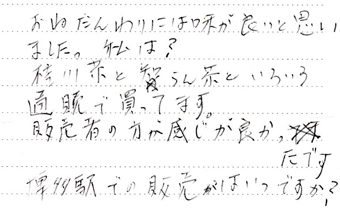 おねだんわりには味が良いと思い
ました。私は?
桂川茶と贅らん茶といろいろ
通販で買ってます。
販売者の方が感じが良かっ
たです
博多駅での販売がはいつですか?